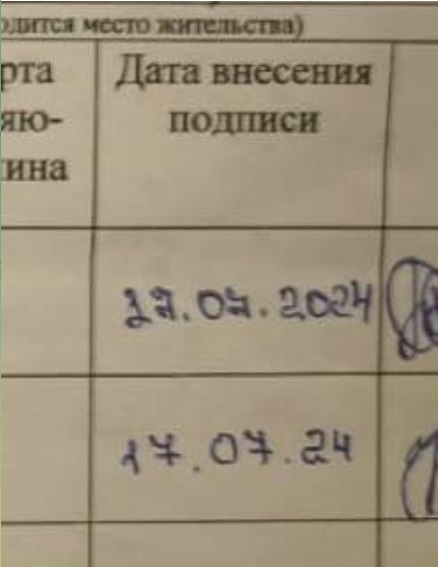 одится место жительства)
рта
яю-
ина
Дата внесения
подписи
17.07.2024
17.07.24